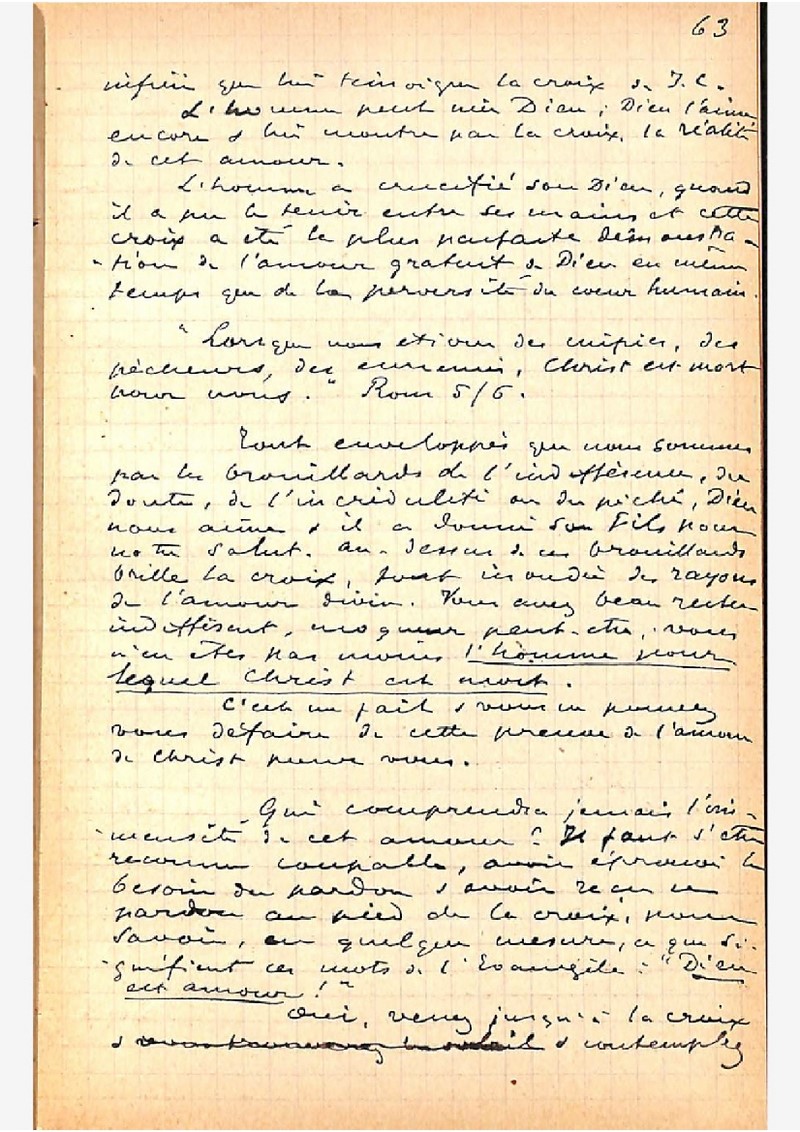 63
infini que lui témoigne la croix de J.C.
L'homme peut nier Dieu ; Dieu l'aime
encore & lui montre par la croix, la réalité
de cet amour.
L'homme a crucifié son Dieu, quand
il a pu le tenir entre ses mains et cette
croix a été la plus parfaite démonstra-
-tion de l'amour gratuit de Dieu en même
temps que de la perversité du coeur humain.
"Lorsque nous étions des impies, des
pécheurs, des ennemis, Christ est mort
pour nous." Rom 5/6.
Tout enveloppés que nous sommes
par les brouillards de l'indifférence, du
doute, de l'incrédulité ou du péché, Dieu
nous aime & il a donné son Fils pour
notre salut. au-dessus de ces brouillards
brille la croix, tout inondée des rayons
de l'amour divin. Vous avez beau rester
indifférent, moqueur peut-être, vous
n'en êtes pas moins l'homme pour
lequel Christ est mort.
C'est un fait & vous ne pouvez
vous défaire de cette preuve de l'amour
de Christ pour vous.
Qui comprendra jamais l'im-
-mensité de cet amour ? Il faut s'être
reconnu coupable, avoir éprouvé le
besoin du pardon & avoir reçu ce
pardon au pied de la croix, pour
savoir, en quelque mesure, ce que si-
-gnifient ces mots de l'Evangile : "Dieu
est amour !"
Oui, venez jusqu'à la croix
& & contemplez